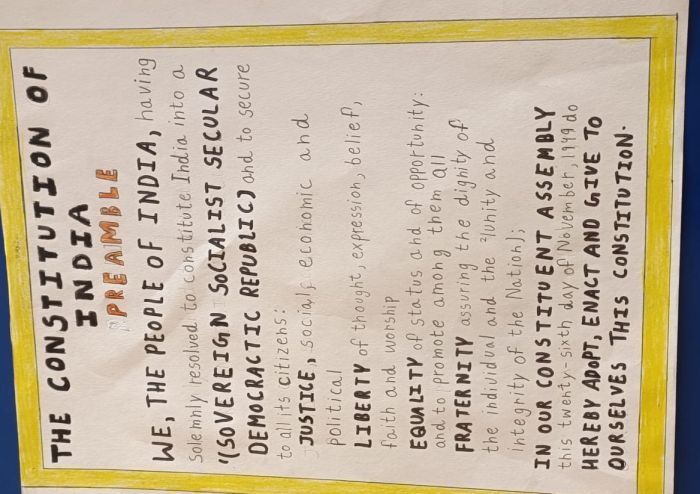 THE CONSTITUTION OF
INDIA
PREAMBLE
WE, THE PEOPLE OF INDIA, having
Solemnly resolved to constitute India into a
¹(SOVEREIGN SOCIALIST SECULAR
DEMOCRACTIC REPUBLIC) and to secure
to all its citizens:
JUSTICE, social, economic and
political
LIBERTY of thought, expression, belief,
faith and worship
EQUALITY of status and of opportunity:
and to promote among them all
FRATERNITY assuring the dighity of
the individual and the ²(unity and
integrity of the Nation);
IN OUR CONSTITUENT ASSEMBLY
this twenty-sixth day of November, 1949 do
HEREBY ADOPT, ENACT AND GIVE TO
OURSELVES THIS CONSTITUTION.